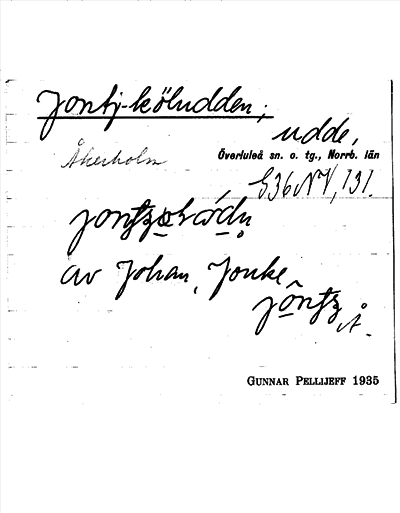 Jontj-köludden,
udde,
Åkerholm
Överluleå sn. o. tg., Norrb. län
G36 NV, 131.
av Johan, Jonke
Å.
GUNNAR PELLIJEFF 1935